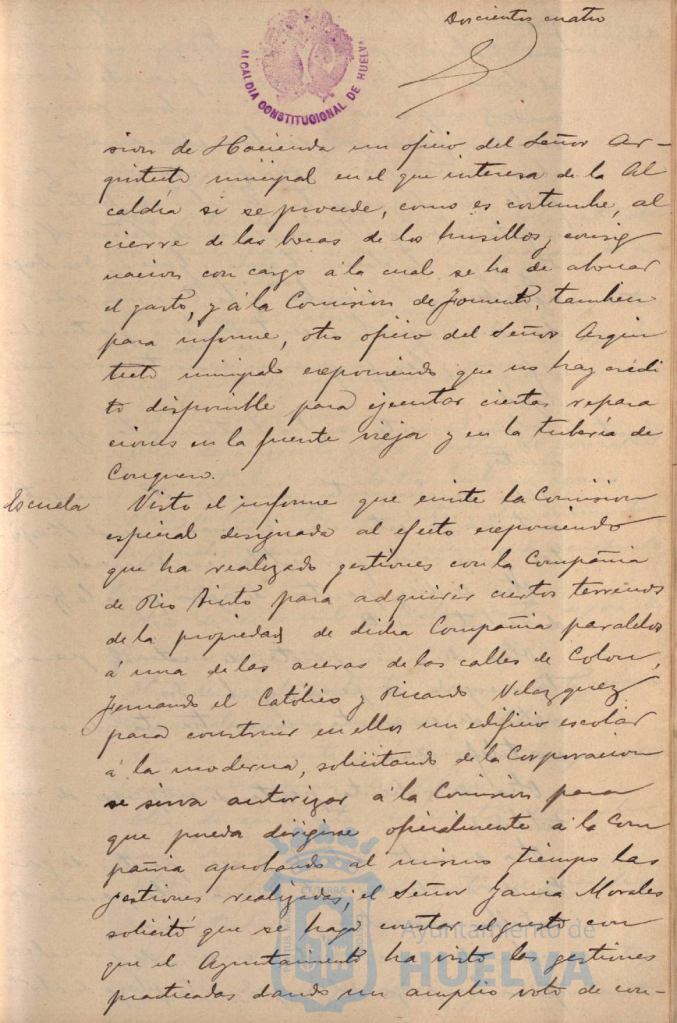 Doscientos cuatro
ALCALDIA CONSTITUCIONAL DE HUELVA
sion de Hacienda un oficio del Señor Ar-
quitecto municipal en el que interesa de la Al
caldía si se procede, como es costumbre, al
cierre de las bocas de los husillos, consig
nacion con cargo á la cual se ha de abonar
el gasto, y á la Comision de Fomento, tambien
para informe, otro oficio del Señor Arqui
tecto municipal exponiendo que no hay crédi
to disponible para ejecutar ciertas repara
ciones en la fuente vieja y en la tubería de
Conquero.
Escuela
Visto el informe que emite la Comision
especial designada al efecto exponiendo
que ha realizado gestiones con la Compañia
de Rio Tinto para adquirir ciertos terrenos
de la propiedad de dicha Compañia paralelos
á una de las aceras de las calles de Colon,
Fernando el Católico y Ricardo Velazquez
para construir en ellos un edificio escolar
á la moderna, solicitando de la Corporacion
se sirva autorizar á la Comision para
que pueda dirigirse oficialmente á la Com
pañia aprobando al mismo tiempo las
gestiones realizadas; el Señor Garcia Morales
solicitó que se haga constar el gusto con
que el Ayuntamiento ha visto las gestiones
practicadas dando un amplio voto de con-
Ayuntamiento de
HUELVA